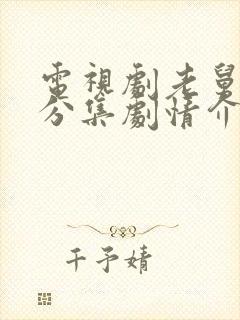 電視劇老舅
分集劇情介
千予婧